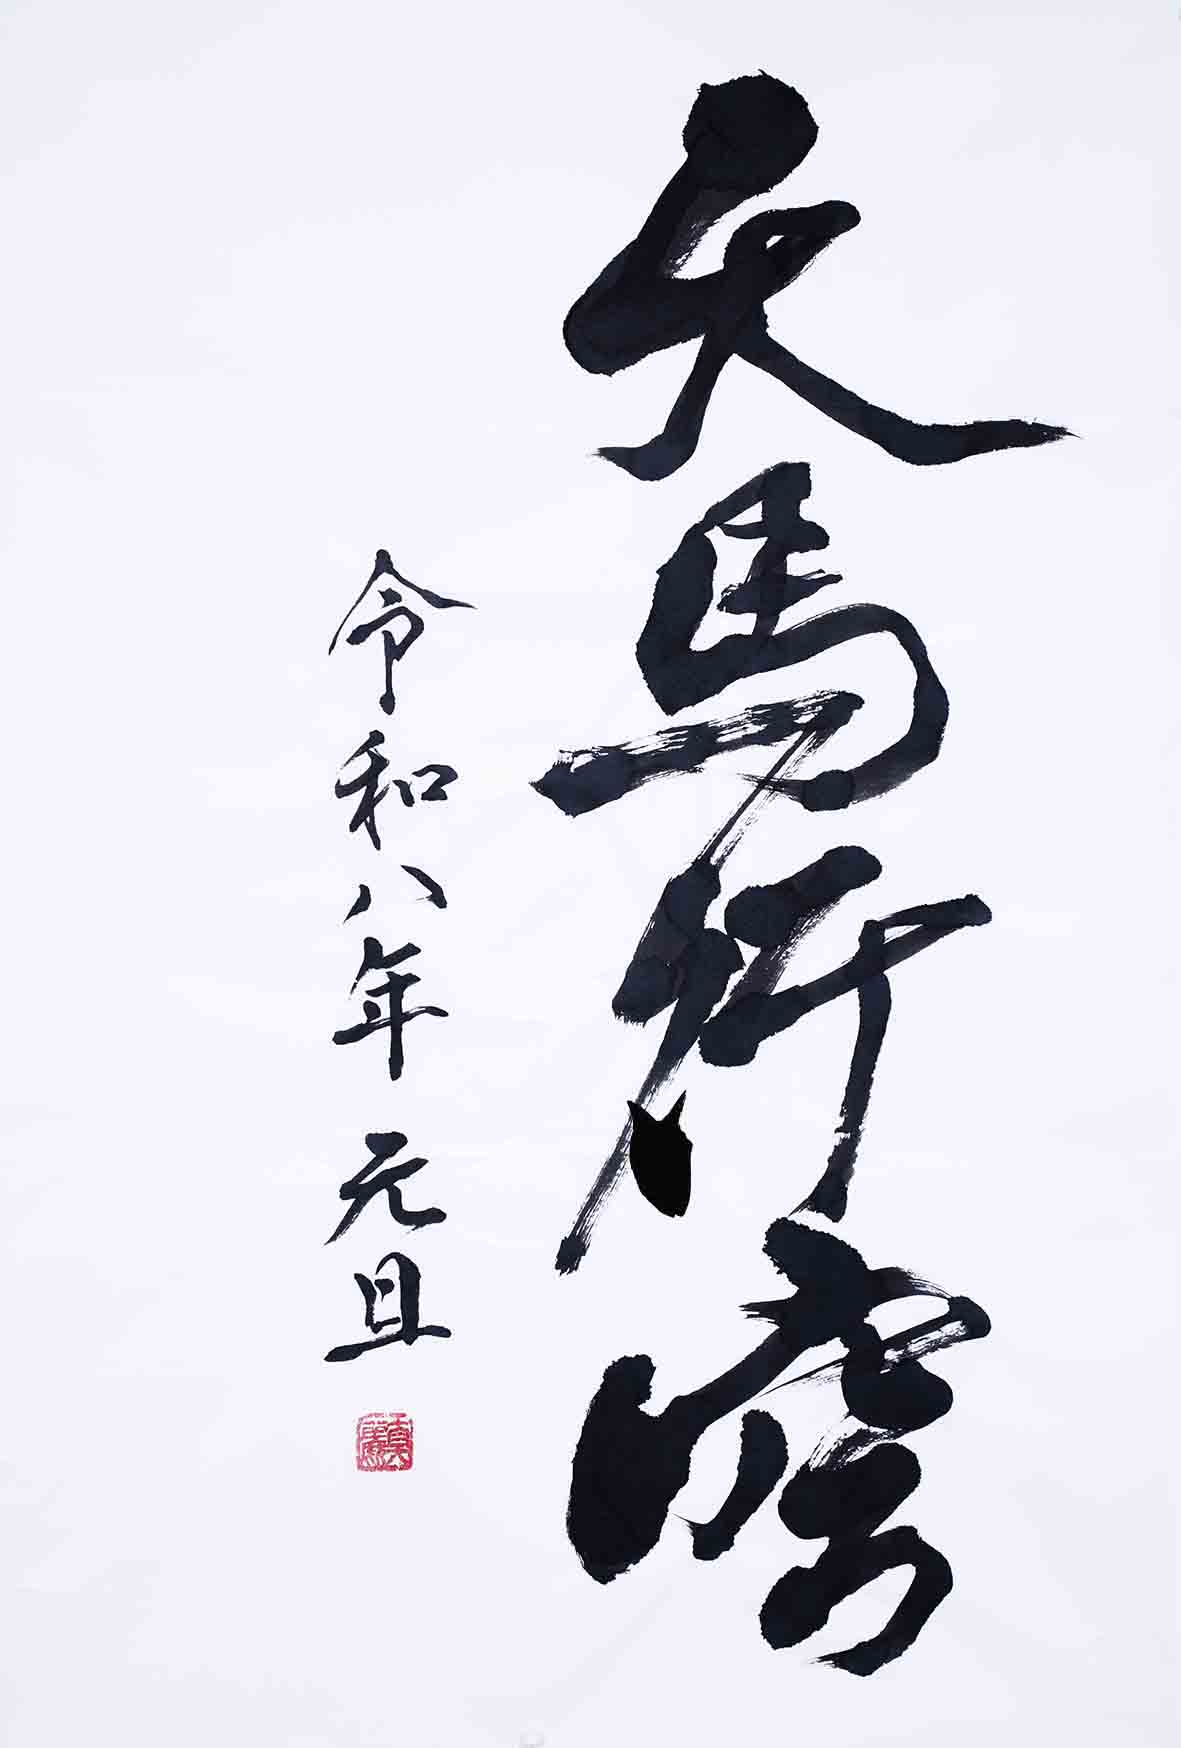 天馬行空
令和八年 元旦